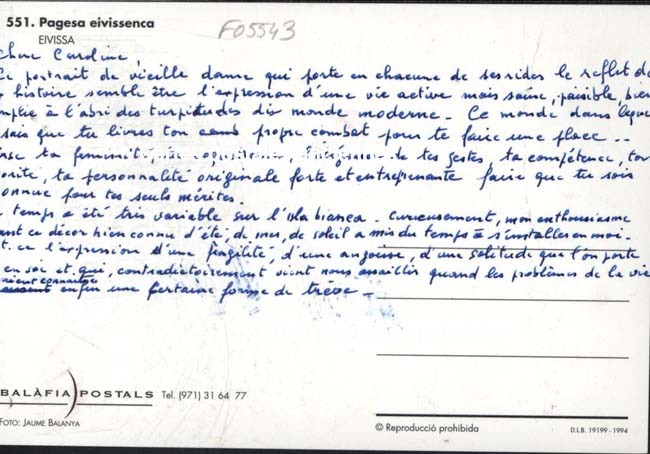 551. Pagesa eivissenca
EIVISSA
F05543
Chère Caroline,
Ce portrait de vieille dame qui porte en chacune de ses rides le reflet de
histoire semble être l'expression d'une vie active mais saine, paisible bien
à l'abri des turpitudes du monde moderne. Ce monde dans leque
sais que tu livres ton propre combat pour te faire une place ..
ta féminité, de tes gestes, ta compétence, ton
ta personnalité originale forte et entreprenante faire que tu sois
connue pour tes seuls mérites.
temps a été très variable sur l'isla bianca. Curieusement, mon enthousiasme
ce décor bien connu d'été, de mer, de soleil a mis du temps à s'installer en moi.
ce l'expression d'une fragilité, d'une angoisse, d'une solitude que l'on porte
en soi et qui, contradictoirement vient nous assaillir quand les problèmes de la vie
enfin une certaine forme de trève _
BALÀFIA POSTALS Tel. (971) 31 64 77
FOTO: JAUME BALANYA
© Reproducció prohibida
D.L.B. 19199 - 1994